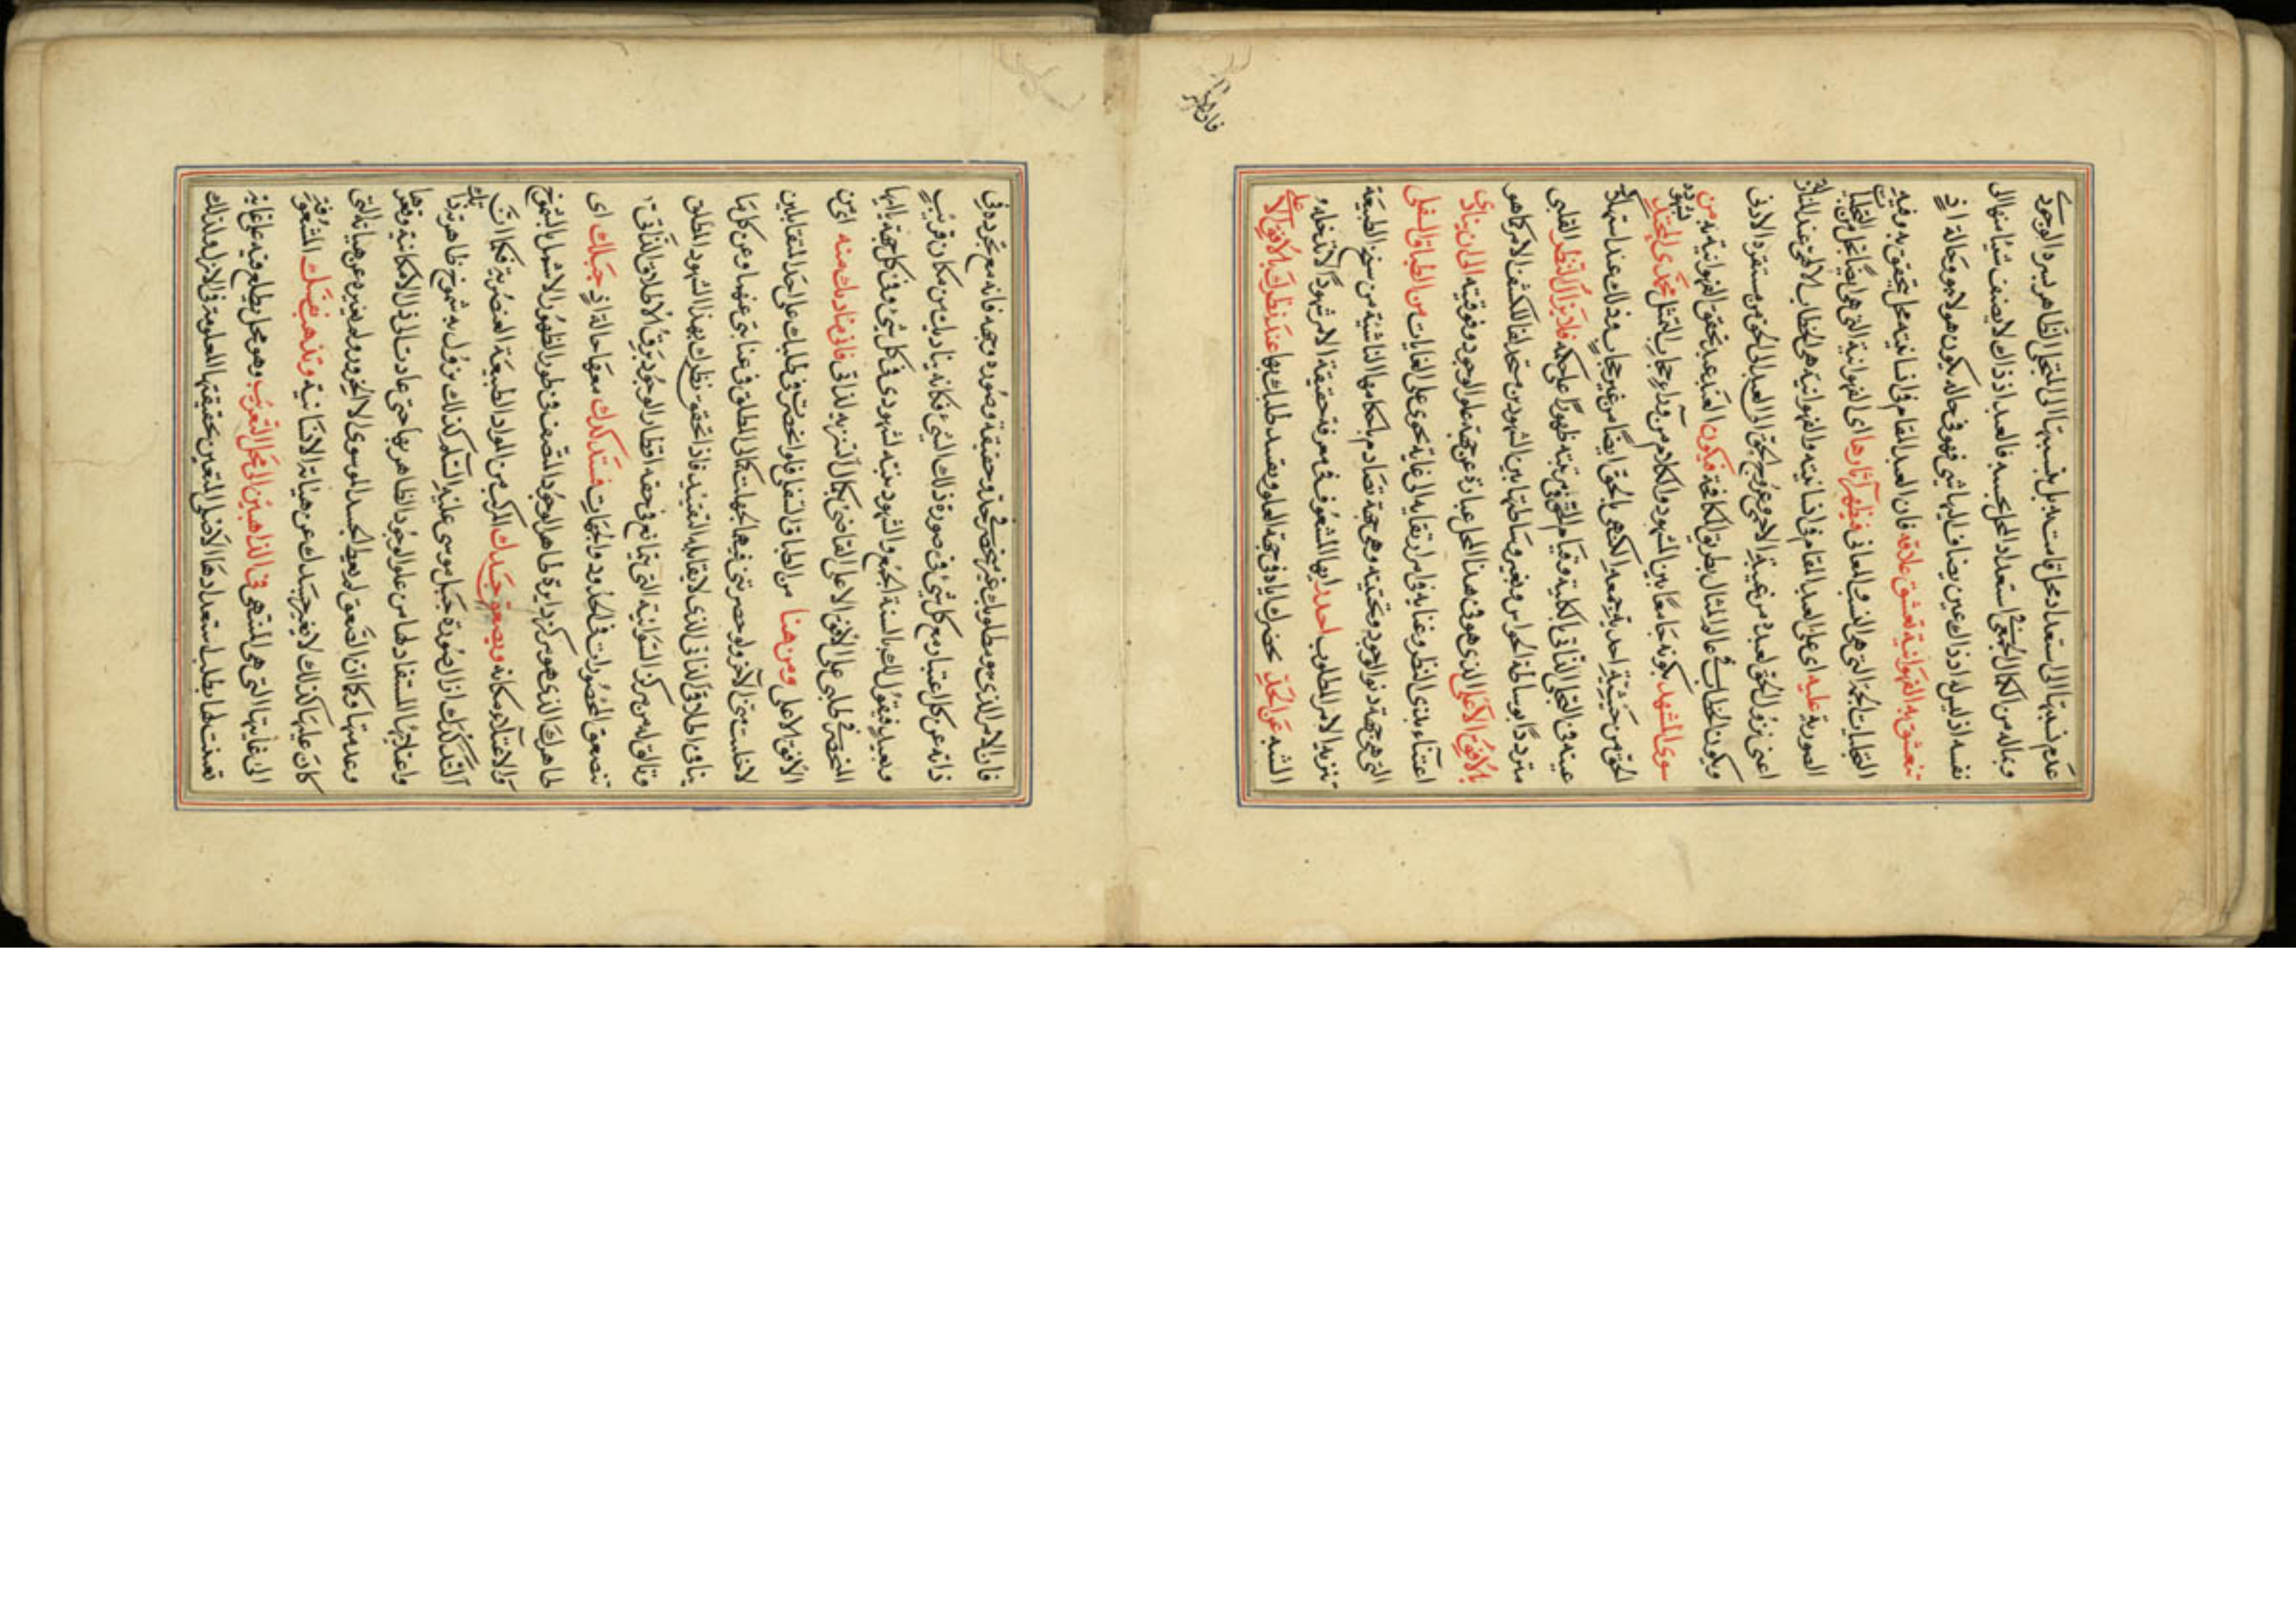 عدم نسبتها الى استعداد محل قامت به بل بنسبتها الى المتجلى الظاهر لسره الوجودى
وبماله من الكمال الجمعى فى استعداد المحل بحسبه فالعبد اذ ذاك لا يضيف شيئا منها الى
نفسه اذ ليس له اذ ذاك عين يضاف اليها شى فهو فى حاله يكون هو لا هو وحالة اذ
تتعشق به الفهوانية تعشق علاقة فان العبد القائم فى انسانيته محل يتحقق به وفيه
التجليات الجمة التى هى النسب والمعانى فيظهر آثارها اى الفهوانية التى هى ايضا تجل من التجليات
الصورية عليه اى على العبد القائم فى انسانيته والفهوانية هى الخطاب الالهى عند المنازلة
اعنى نزول الحق لعبده من غيبه الاحمى وعروج العبد الى الحق من مستقره الادنى
ويكون الخطاب فى عالم المثال بطريق المكافحة فيكون العبد عند تحقق الفهوانية به من
سوى المشهد بكونه جامعا بين الشهود والكلام من وراء حجاب التمثل محمدى المحتد شهوده
الحق من حيثية احدية جمعه الكنهى الحق ايضا من غير حجاب وذلك عند استهلاك
عينه فى التجلى الذاتى بالكلية وقيام الحق بنعته ظهورا على حكمه فلا يزال النظر القلبى
مترددا بوساطة الحواس وبغير وساطتها بين الشهودين لكشف الامر كما هو
بالافق الاعلى الذى هو فى هذا المحل عبارة عن جهة علو الوجود وفوقيته الى ان ينادى
اعتناء بذى النظر وعناية فى امر ارتقايه الى غاية تحوى على الغايات من الطباق السفلى
التى هى جهة دنو الوجود وتحتيته وهى جهة تصادم احكامها الناشئة من سنخ الطبيعة
تنزيه الامر المطلوب ايها المشغوف فى معرفة حقيقة الامر شهودا لا يتخلله
الشبه عن الحد حصرك اياه فى جهة العلو وبقصد طلبك بها عند نظرك بالافق الاعلى
فان الامر الذى هو مطلوبك غير منحصر فى حد وحقيقة وصورة وجهة فانه مع تجرده فى
ذاته عن كل اعتبار مع كل شئ فى صورة ذلك الشئ فكانه يناديك من مكان قريب
وبعيد فيقول لك بالسنة الجمع والشهود نبه لشهودى فى كل شئ وفى كل جهة ايها
المنحصر فى طلبى على الافق الاعلى القاضى بكمال التنزيه لذاتى فانى مناديك منه اى من
الافق الاعلى ومن هنا من الطباق السفلى فلو انحصرت فى طلبك على احد المتقابلين
لاخليتنى عن الآخر ولو حصرتنى فيهما لجهلت كمالى المطلق فى غناى عنهما وعن كل ما
ينافى اطلاقى الذاتى الذى لا يقابله التقييد فاذا تحقق نظرك بهذا الشهود المطلق
وتالق له من مركز السوائية التى تمانع فى حقه اقطار الوجود برق الاطلاق الذاتى
تنصعق الحصورات فى الحدود والجهات فيتدكدك معها حالة اذ جبلك اى
ظاهرك الذى هو مركز دايرة ظاهر الوجود المتصف فى طور الظهور الاشمل بالشموخ
والاعتلاء مكانه ويصعق جسدك المركب من المواد الطبيعة العنصرية فكما ان
التدكدك ازال صورة جبل موسى عليه السلام كذلك يزول به شموخ ظاهريتك
واعتلائها المستفاد لها من علو الوجود الظاهر بها حتى عادت الى ذل الامكانية وفقرها
وعدميتها وكما ان الصعق لم يعط الجسد الموسوى الا الخرور ولم يغيره عن هيأته التى
كان عليها كذلك لا يغير جسدك عن هيأته الانسانية وتذهب نفسك المشغوفة
الى غايتها التى هى المنتهى فى الذاهبين الى محل التقريب وهو محل يطلع فيه على غاية
تعينت لها بطلب استعدادها الاصلى المتعين بحقيقتها المعلومة فى الازل ولذلك